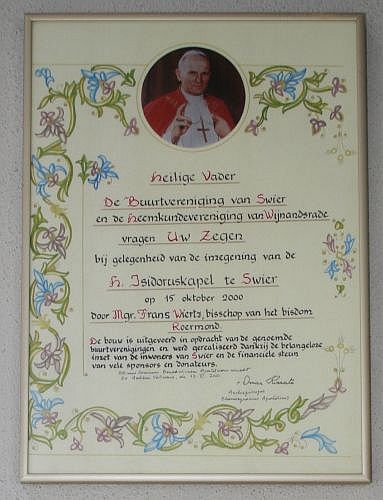 Heilige Vader
De Buurtvereniging van Swier
en de Heemkundevereniging van Wijnandsrade
vragen Uw Zegen
bij gelegenheid van de inzegening van de
H. Isidoruskapel te Swier
op 15 oktober 2000
door Mgr. Frans Wiertz, bisschop van het bisdom
Roermond.
De bouw is uitgevoerd in opdracht van de genoemde
buurtverenigingen en werd gerealiseerd dankzij de belangeloze
inzet van de inwoners van Swier en de financiele steun
van vele sponsors en donateurs.